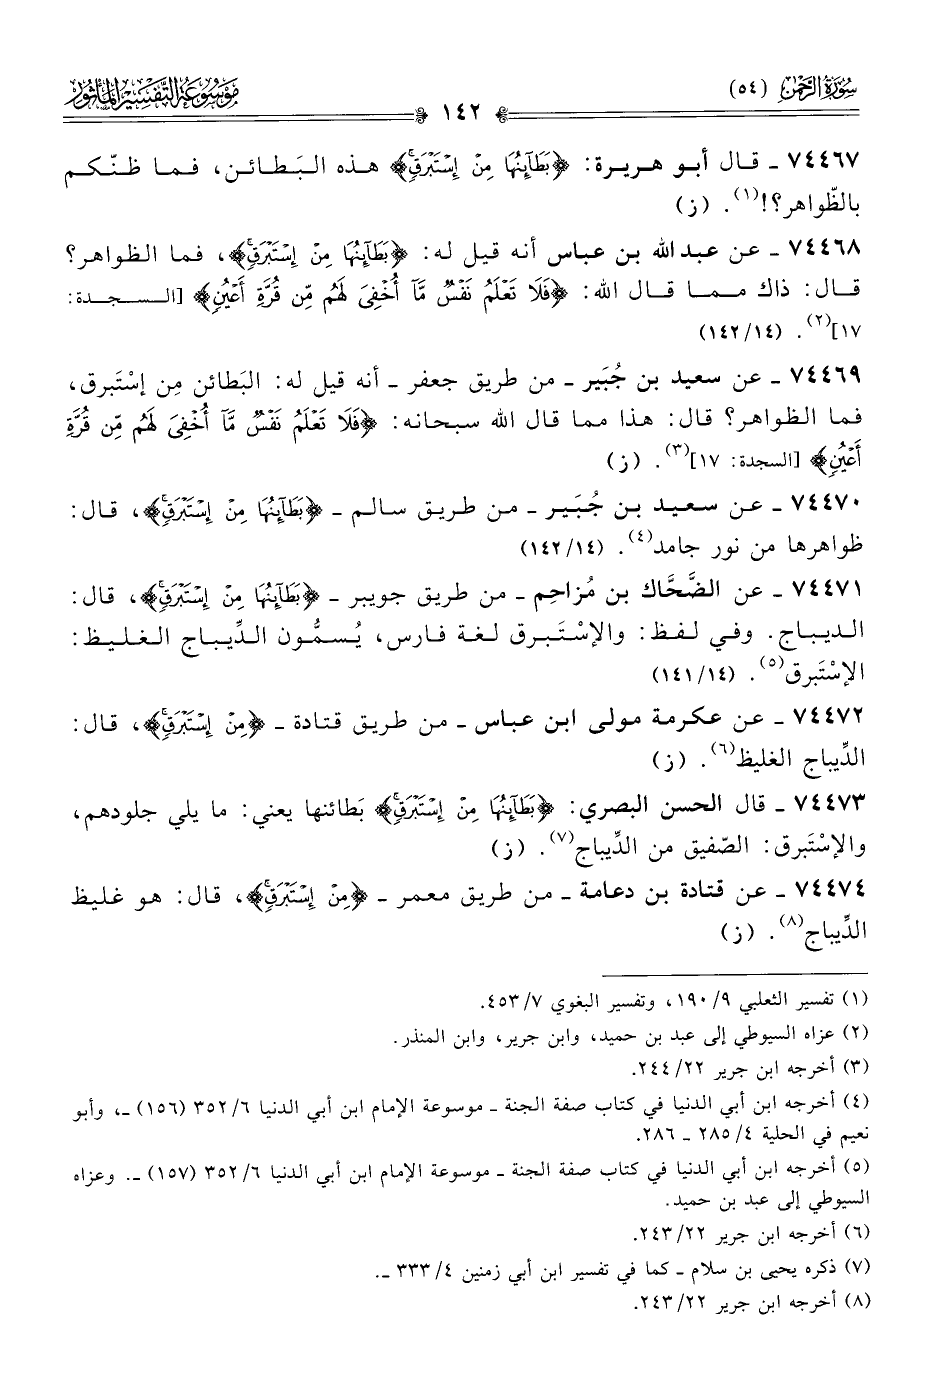 سُورَةُ الرَّحْمٰن (٥٤)
١٤٢
مَوْسُوعَةُ التَّفْسِيرِ المَأْثُور
٧٤٤٦٧ ـ قال أبو هريرة: ﴿بَطَآئِنُهَا مِنْ إِسْتَبْرَقٍۚ﴾ هذه البَطائن، فما ظنّكم
بالظّواهر؟!(١). (ز)
٧٤٤٦٨ ـ عن عبد الله بن عباس أنه قيل له: ﴿بَطَآئِنُهَا مِنْ إِسْتَبْرَقٍۚ﴾، فما الظواهر؟
قال: ذاك مما قال الله: ﴿فَلَا تَعْلَمُ نَفْسٌ مَّآ أُخْفِيَ لَهُم مِّن قُرَّةِ أَعْيُنٍ﴾ [السجدة:
١٧](٢). (١٤٢/١٤)
٧٤٤٦٩ ـ عن سعيد بن جُبَير ـ من طريق جعفر ـ أنه قيل له: البَطائن مِن إسْتَبرق،
فما الظواهر؟ قال: هذا مما قال الله سبحانه: ﴿فَلَا تَعْلَمُ نَفْسٌ مَّآ أُخْفِيَ لَهُم مِّن قُرَّةِ
أَعْيُنٍ﴾ [السجدة: ١٧](٣). (ز)
٧٤٤٧٠ ـ عن سعيد بن جُبَير ـ من طريق سالم ـ ﴿بَطَآئِنُهَا مِنْ إِسْتَبْرَقٍۚ﴾، قال:
ظواهرها من نور جامد(٤). (١٤٢/١٤)
٧٤٤٧١ ـ عن الضَّحَّاك بن مُزاحِم ـ من طريق جويبر ـ ﴿بَطَآئِنُهَا مِنْ إِسْتَبْرَقٍۚ﴾، قال:
الديباج. وفي لفظ: والإسْتَبرق لغة فارس، يُسمُّون الدِّيباج الغليظ:
الإسْتَبرق(٥). (١٤١/١٤)
٧٤٤٧٢ ـ عن عكرمة مولى ابن عباس ـ من طريق قتادة ـ ﴿مِنْ إِسْتَبْرَقٍۚ﴾، قال:
الدِّيباج الغليظ(٦). (ز)
٧٤٤٧٣ ـ قال الحسن البصري: ﴿بَطَآئِنُهَا مِنْ إِسْتَبْرَقٍۚ﴾ بَطائنها يعني: ما يلي جلودهم،
والإسْتَبرق: الصّفيق من الدِّيباج(٧). (ز)
٧٤٤٧٤ ـ عن قتادة بن دعامة ـ من طريق معمر ـ ﴿مِنْ إِسْتَبْرَقٍۚ﴾، قال: هو غليظ
الدِّيباج(٨). (ز)
(١) تفسير الثعلبي ٩/ ١٩٠، وتفسير البغوي ٧/ ٤٥٣.
(٢) عزاه السيوطي إلى عبد بن حميد، وابن جرير، وابن المنذر.
(٣) أخرجه ابن جرير ٢٢/ ٢٤٤.
(٤) أخرجه ابن أبي الدنيا في كتاب صفة الجنة ـ موسوعة الإمام ابن أبي الدنيا ٦/ ٣٥٢ (١٥٦) ـ، وأبو
نعيم في الحلية ٤/ ٢٨٥ ـ ٢٨٦.
(٥) أخرجه ابن أبي الدنيا في كتاب صفة الجنة ـ موسوعة الإمام ابن أبي الدنيا ٦/ ٣٥٢ (١٥٧) ـ. وعزاه
السيوطي إلى عبد بن حميد.
(٦) أخرجه ابن جرير ٢٢/ ٢٤٣.
(٧) ذكره يحيى بن سلام ـ كما في تفسير ابن أبي زمنين ٤/ ٣٣٣ ـ.
(٨) أخرجه ابن جرير ٢٢/ ٢٤٣.